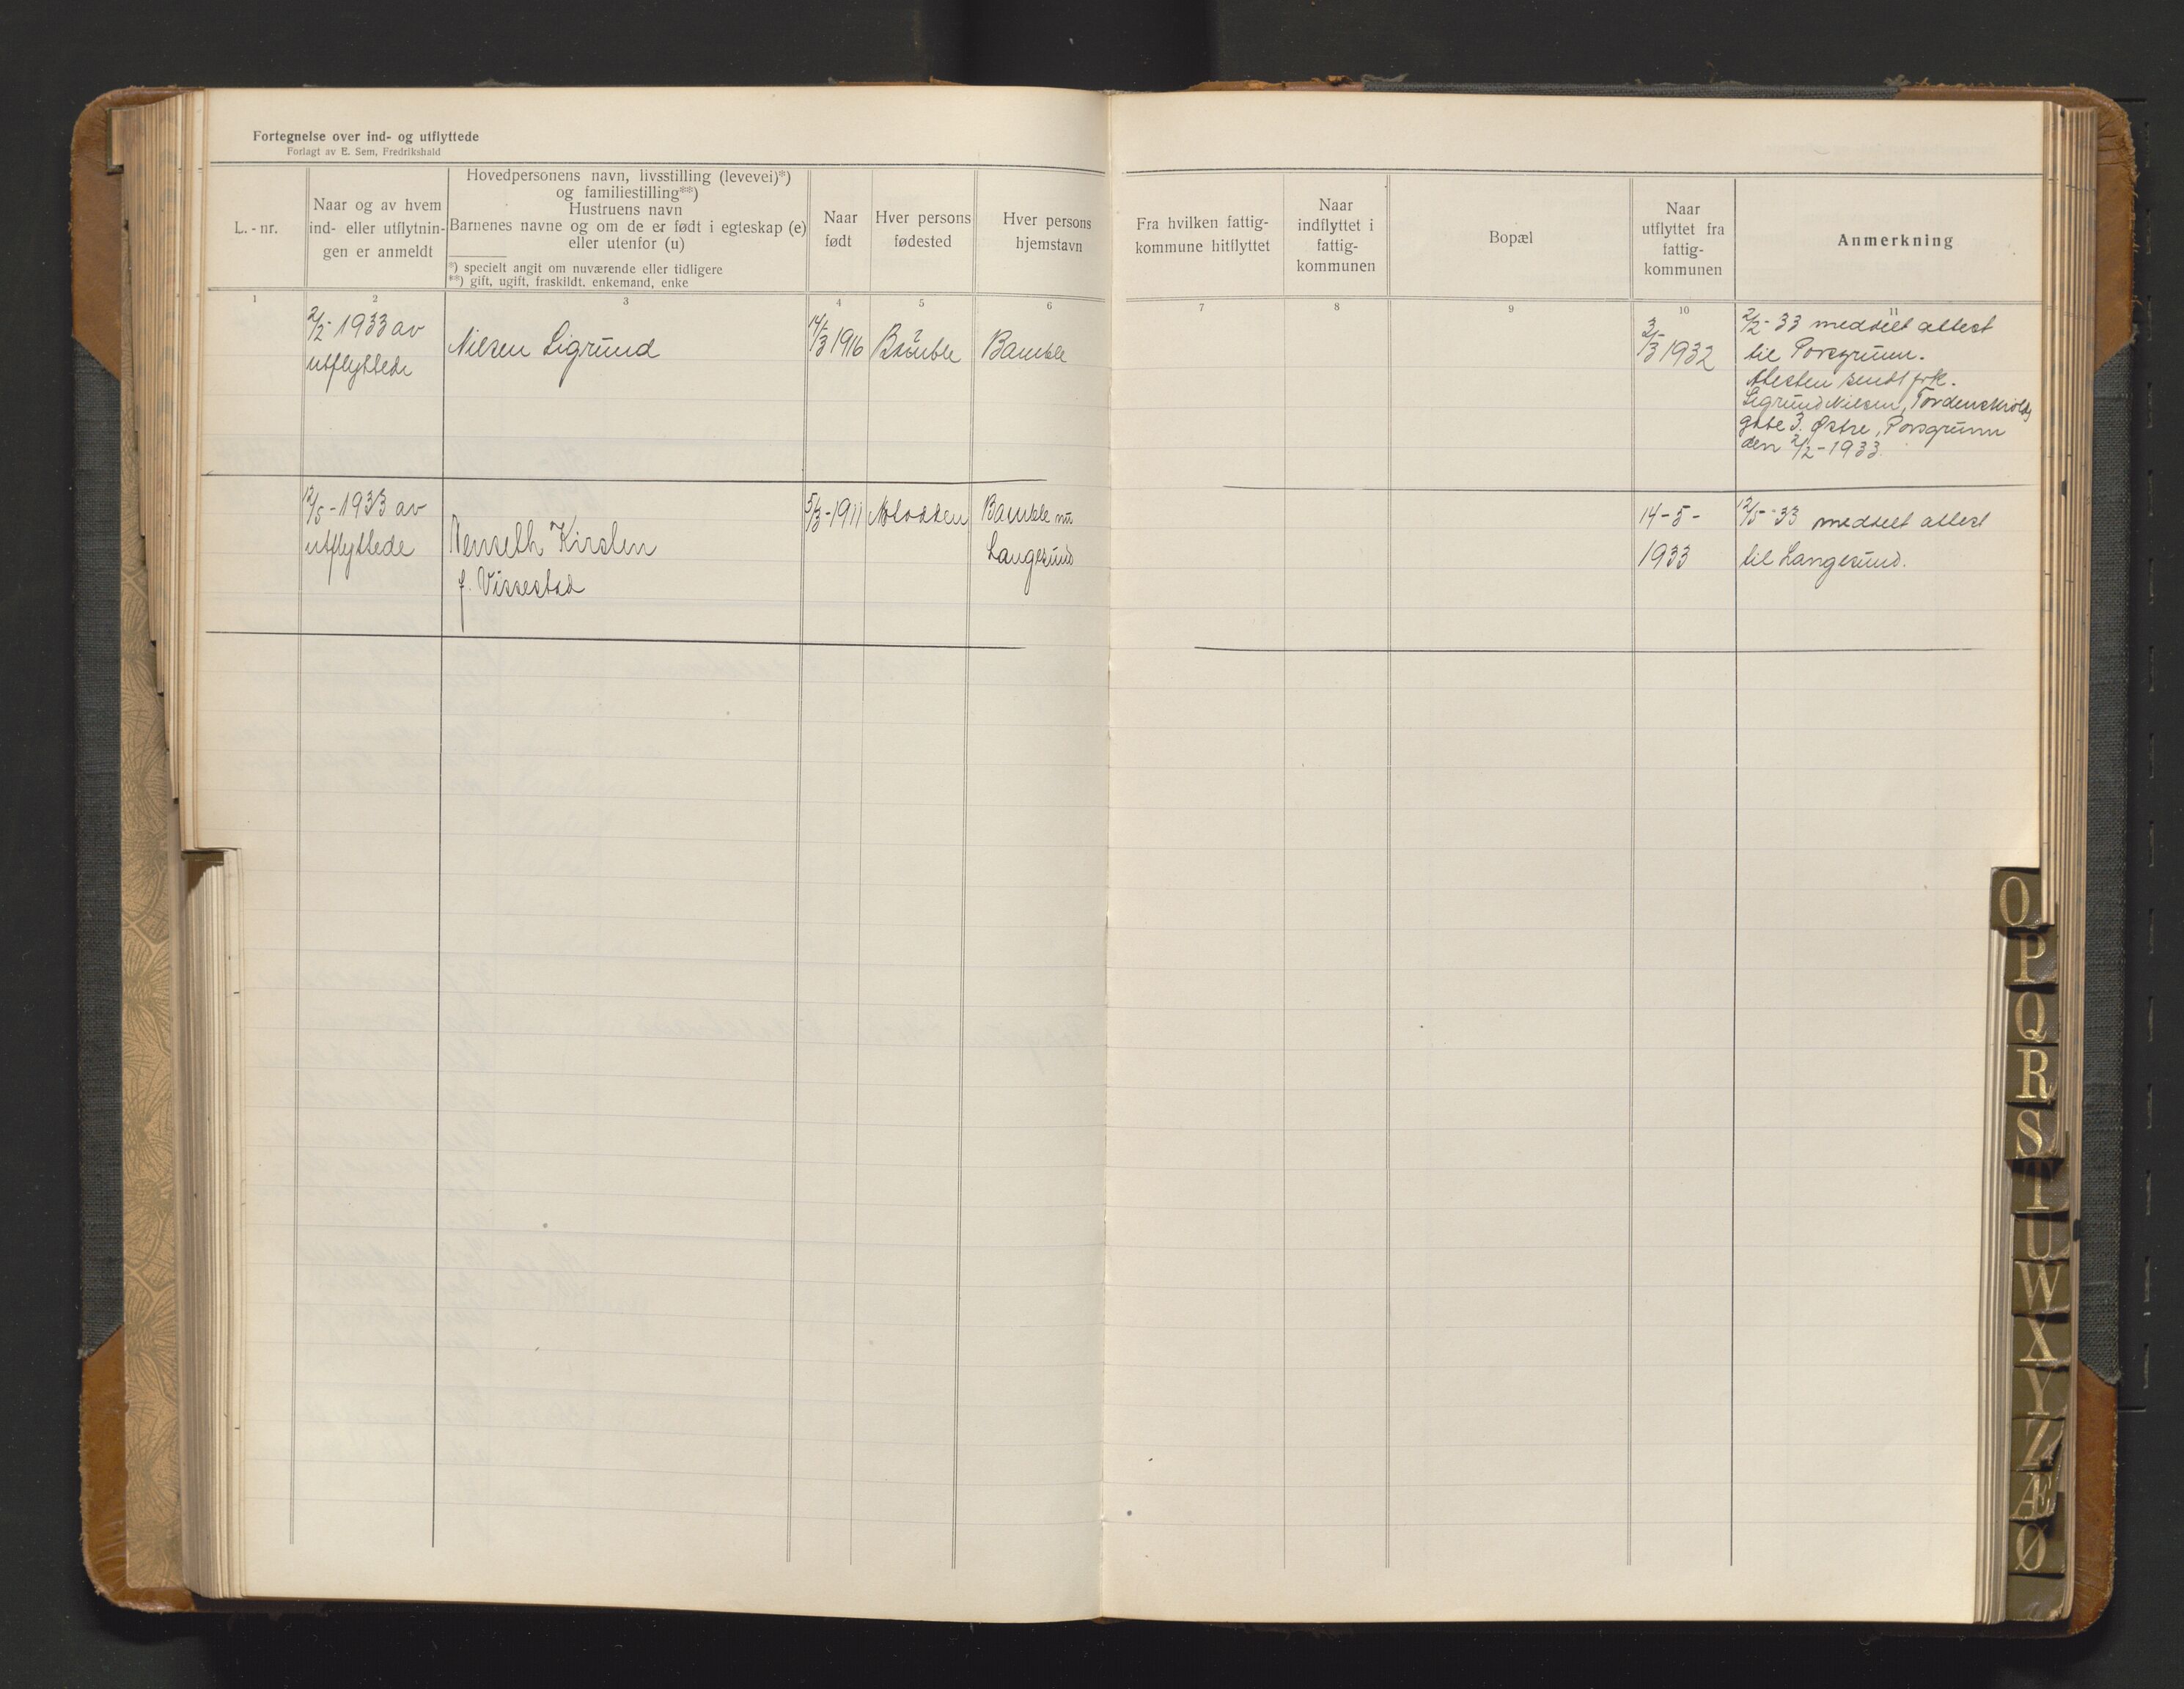 Fortegnelse over ind- og utflyttede
Forlagt av E. Sem, Fredrikshald
L.-nr.
Naar og av hvem
ind- eller utflytnin-
gen er anmeldt
Hovedpersonens navn, livsstilling (levevei)*)
og familiestilling**)
Hustruens navn
Barnenes navne og om de er født i egteskap (e)
eller utenfor (u)
*) specielt angit om nuværende eller tidligere
**) gift, ugift, fraskildt, enkemand, enke
Naar
født
Hver persons
fødested
Hver persons
hjemstavn
Fra hvilken fattig-
kommune hitflyttet
Naar
indflyttet i
fattig-
kommunen
Bopæl
Naar
utflyttet fra
fattig-
kommunen
Anmerkning
1 2 3 4 5 6 7 8 9 10 11
2/2-1933 av
utflyttede
Nilsen Sigrund
14/3 1916
Bamble
3/3 1932
2/2-33 meddelt attest
til Porsgrunn.
Attesten sendt frk.
Sigrund Nilsen, Tordenskiolds
gate 3. Østre, Porsgrunn
den 2/2-1933.
12/5-1933 av
utflyttede
Kirsten
f. Vissestad
5/3-1911
Bamble nu
Langesund
14-5-
1933
12/5-33 meddelt attest
til Langesund.
O
P
Q
R
S
T
U
W
X
Y
Z
Æ
Ø